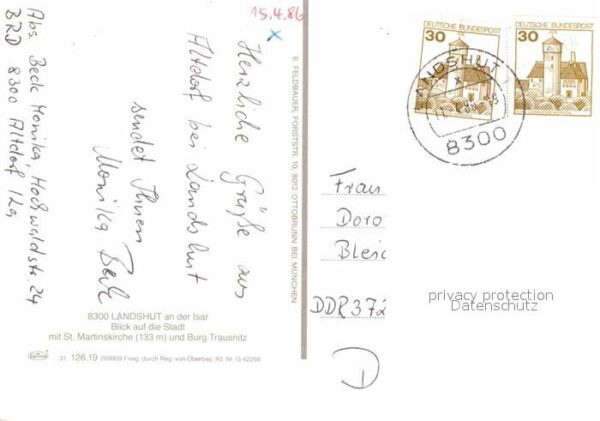 Abs. Beck Monika, Hochwaldstr. 24
BRD 8300 Altdorf / La
15.4.86
x
Herzliche Grüße aus
Altdorf bei Landshut
sendet Ihnen
Monika Beck
8300 LANDSHUT an der Isar
Blick auf die Stadt
mit St. Martinskirche (133 m) und Burg Trausnitz
31. 126.19 269909 Freig. durch Reg. von Oberbay. Rf. Nr. G 42268
E. FELDBAUER, FORSTSTR. 10, 8012 OTTOBRUNN BEI MÜNCHEN
30
DEUTSCHE BUNDESPOST
30
DEUTSCHE BUNDESPOST
LANDSHUT
8300
Frau
Doro
Bleic
DDR 372
D
privacy protection
Datenschutz